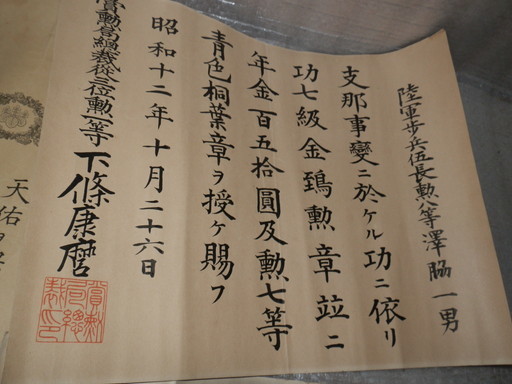 陸軍步兵伍長勲八等澤脇一男
支那事變ニ於ケル功ニ依リ
功七級金鵄勲章竝ニ
年金百五拾圓及勲七等
青色桐葉章ヲ授ケ賜フ
昭和十二年十月二十六日
賞勲局總裁從三位勲一等下條康麿
賞勲局總裁印
天佑